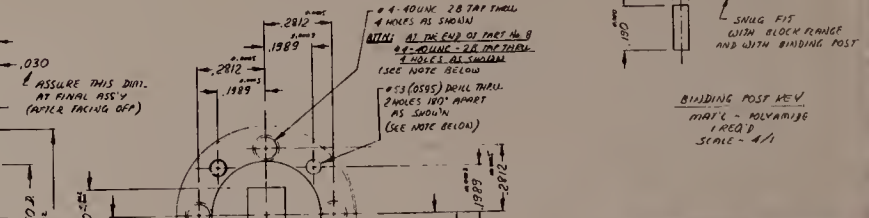 .030
ASSURE THIS DIM.
AT FINAL ASS'Y
(AFTER FACING OFF)
.2812
.1989
.2812
.1989
#4-40UNC 2B TAP THRU
4 HOLES AS SHOWN
ATTN: AT THE END OF PART No. 8
#4-40UNC-2B TAP THRU
4 HOLES AS SHOWN
(SEE NOTE BELOW
#53 (.0595) DRILL THRU
2 HOLES 180° APART
AS SHOWN
(SEE NOTE BELOW)
.1989
.2812
.190
SNUG FIT
WITH BLOCK FLANGE
AND WITH BINDING POST
BINDING POST KEY
MAT'L - POLYAMIDE
1 REQ'D
SCALE - 4/1